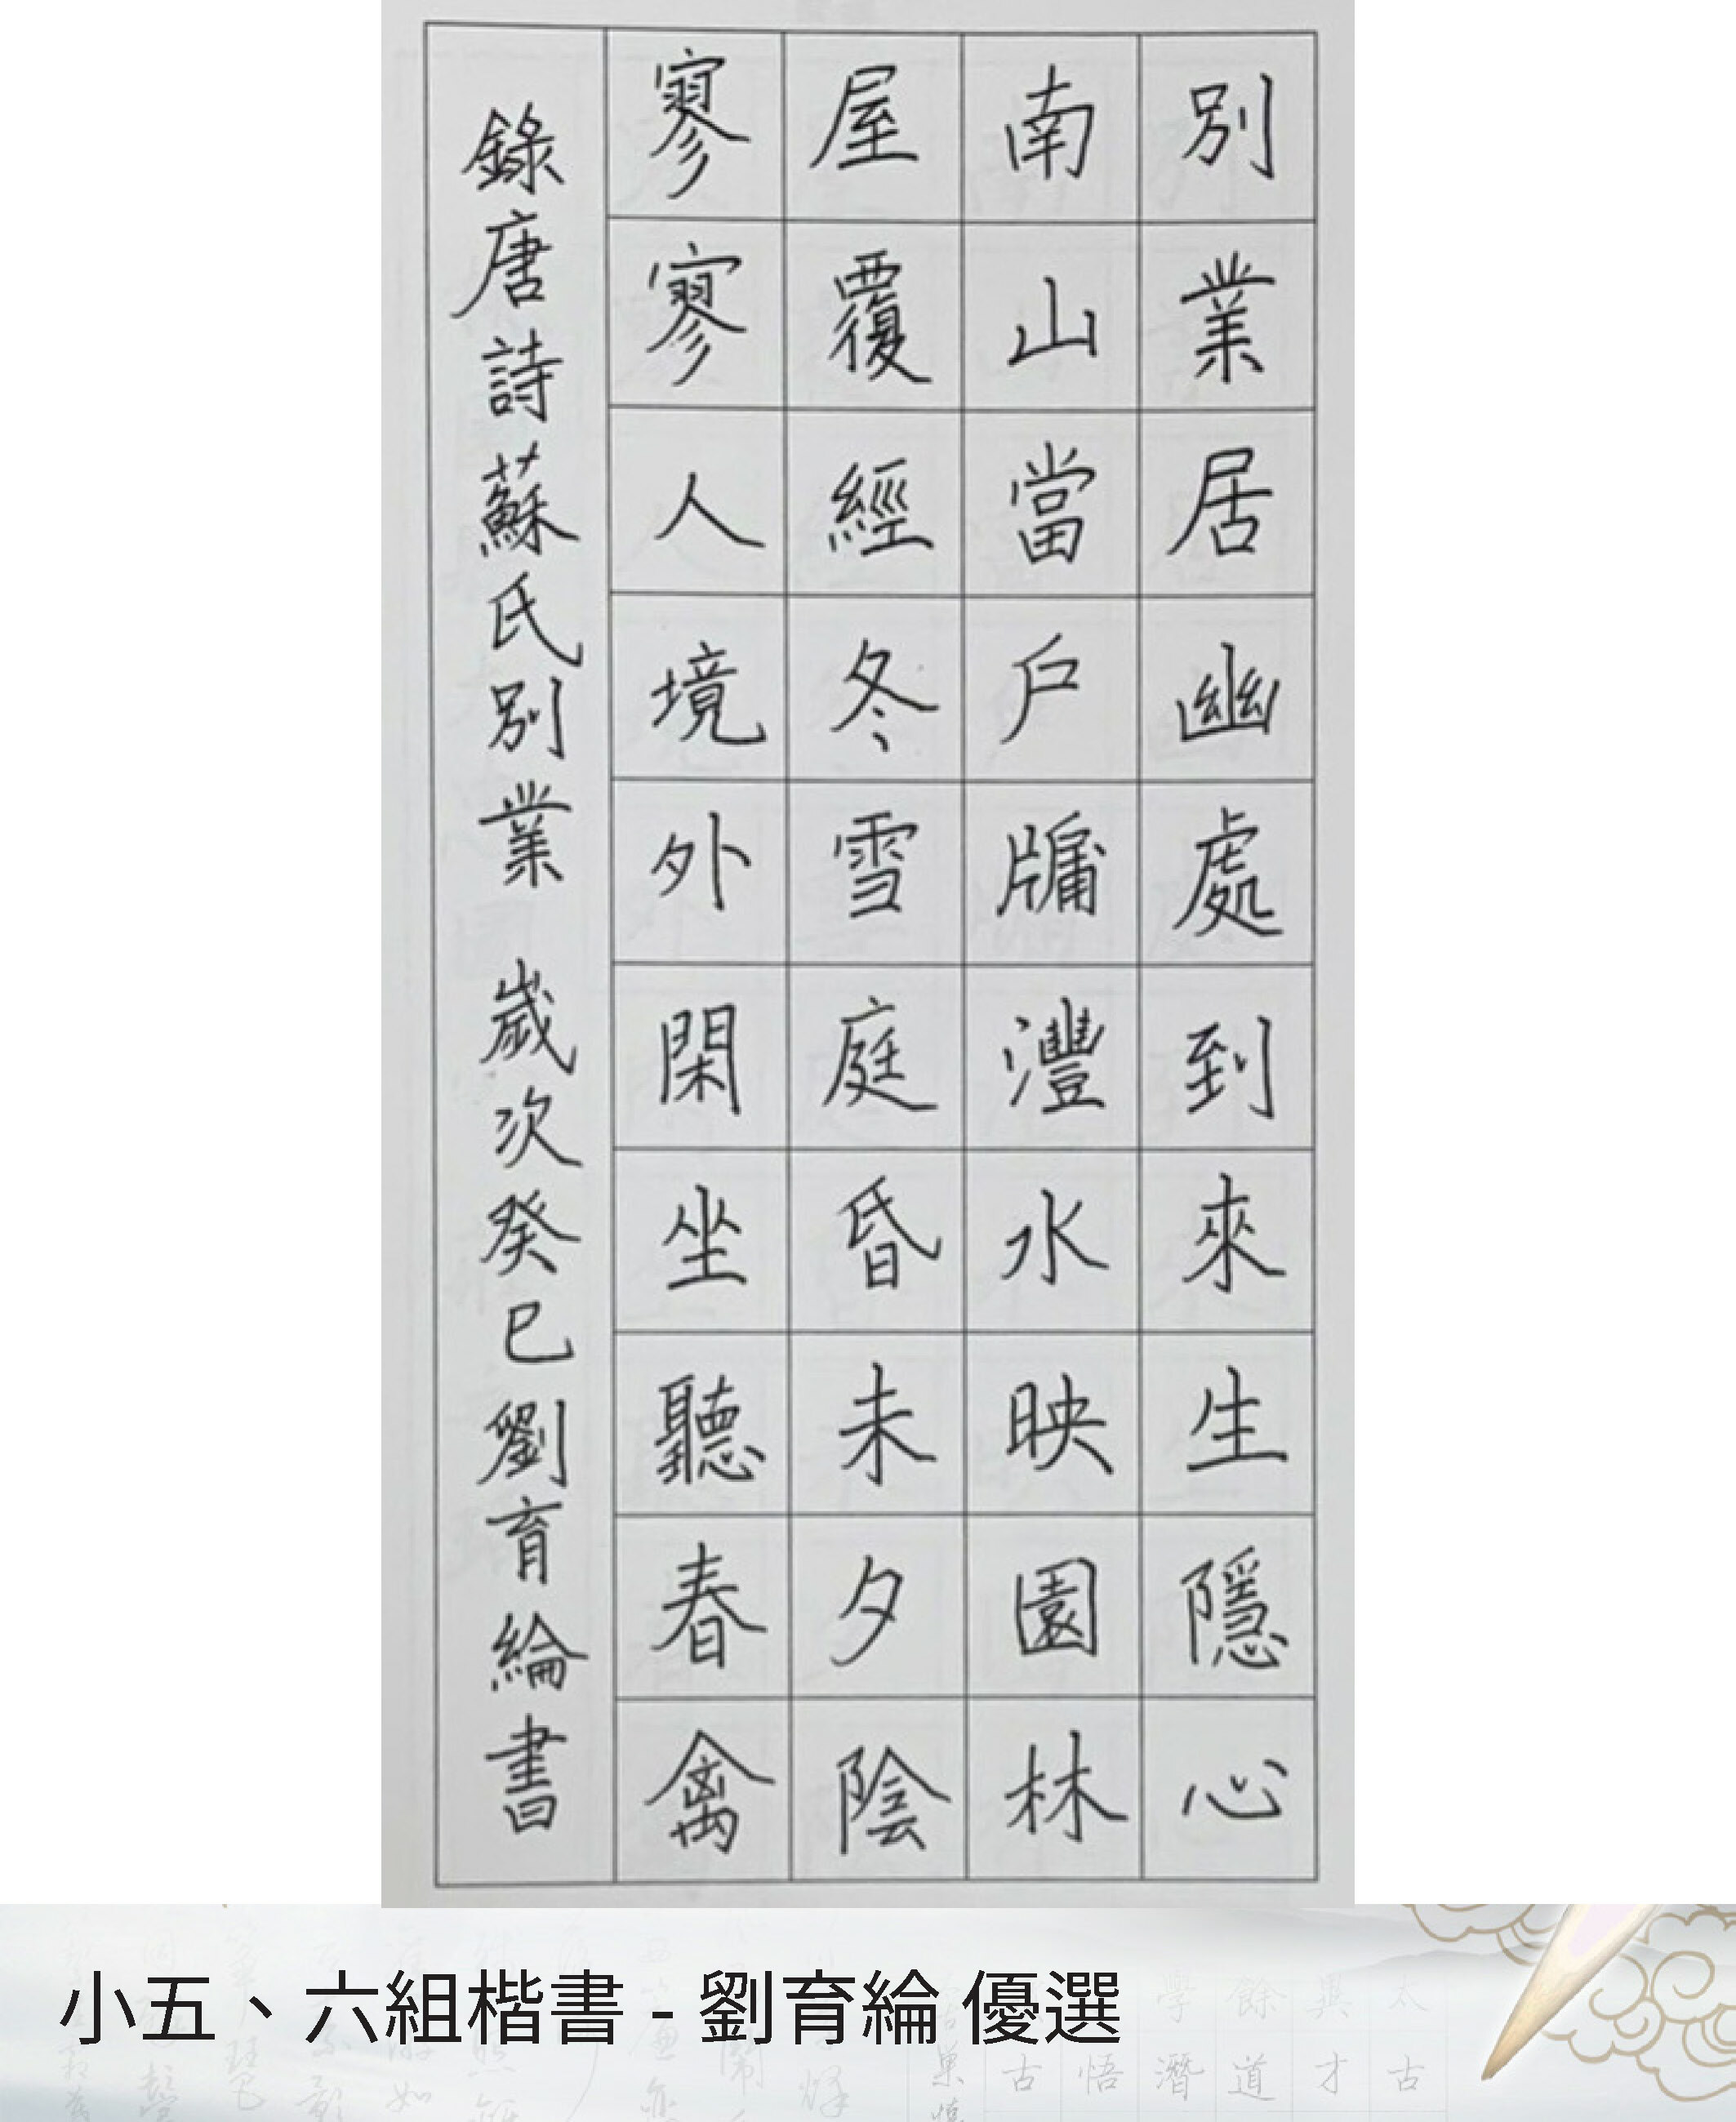 別業居幽處到來生隱心
南山當戶牖灃水映園林
屋覆經冬雪庭昏未夕陰
寥寥人境外閑坐聽春禽
錄唐詩蘇氏別業 歲次癸巳劉育綸書
小五、六組楷書 - 劉育綸 優選